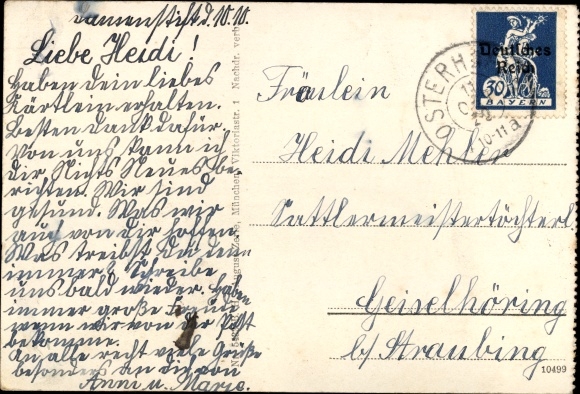 Damenstift d. 10.10.
Liebe Heidi!
Haben dein liebes
Kärtlein erhalten.
Besten Dank dafür.
Von uns kann ich
dir Nichts Neues be-
richten. Wir sind
gesund. Was wir
auch von dir hoffen.
Was treibst Du denn
immer? Schreibe
uns bald wieder. Haben
immer große Freude
wenn wir von der Post
bekommen.
An alle recht viele Grüße
besonders an die von
Anni u. Marie.
Nachdr. verb.
München, Viktoriastr. 1
Deutsches
Reich
30
BAYERN
OSTERH
10-11
Fräulein
Heidi Mehler
Sattlermeisterstöchterl.
Geiselhöring
b/ Straubing
10499